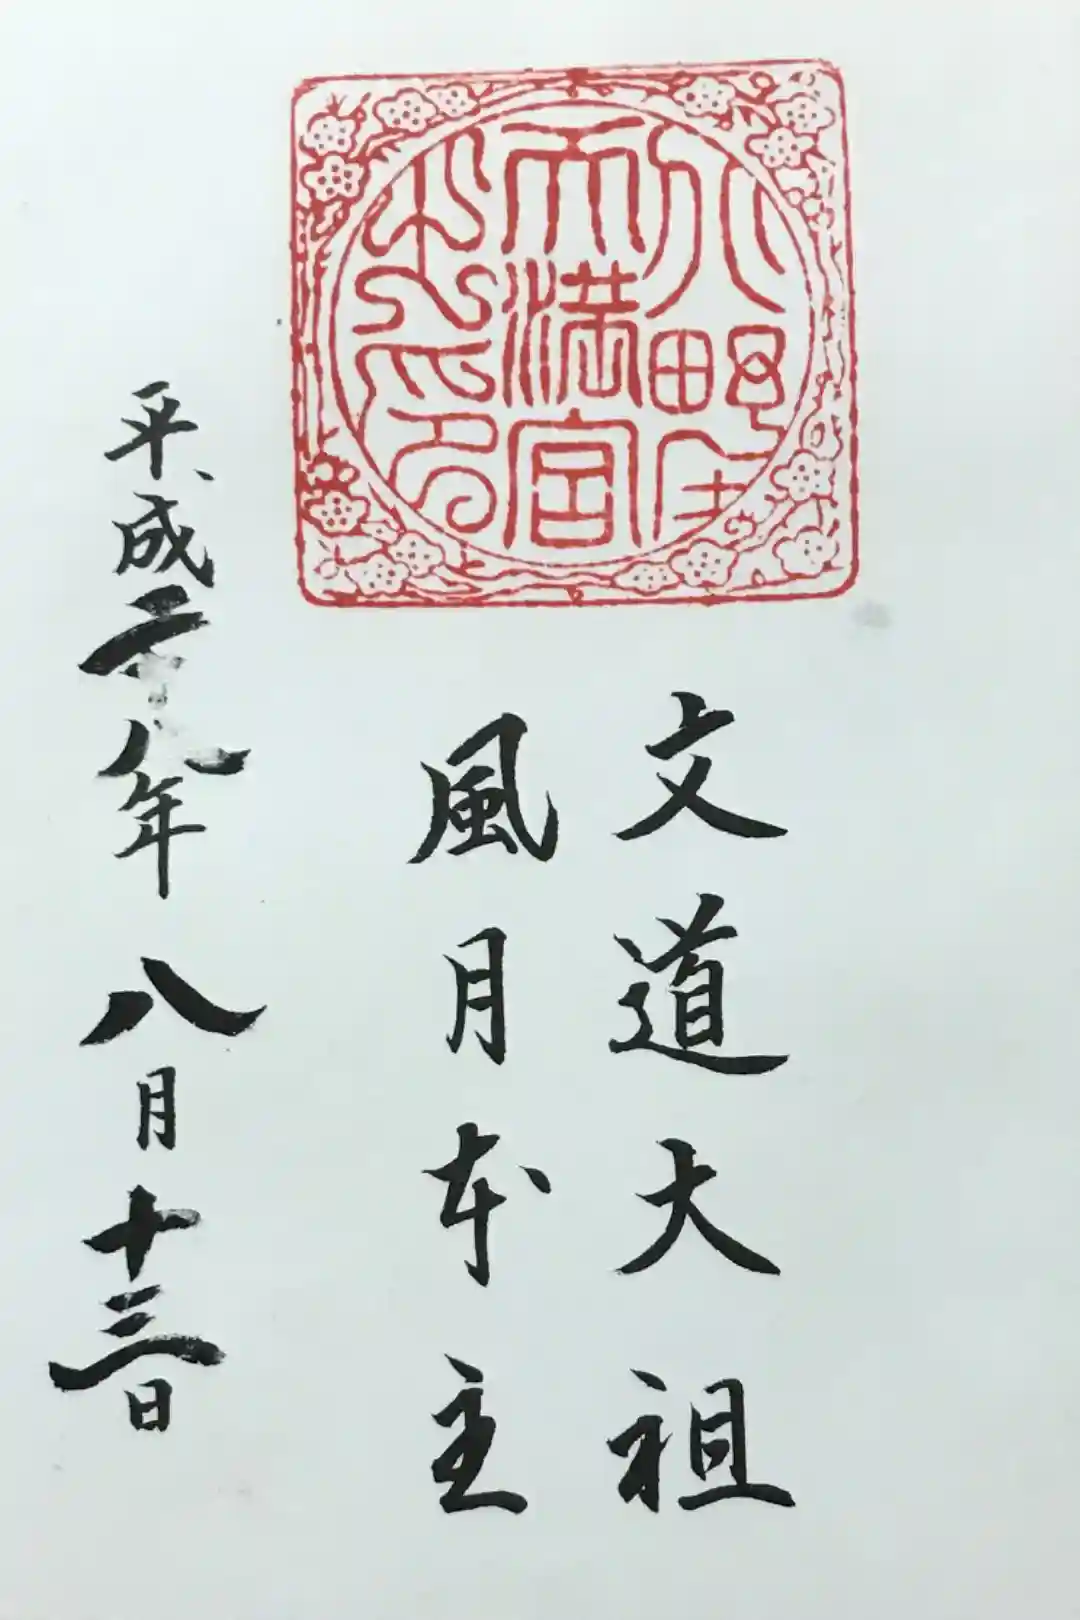 天満宮
文道大祖
風月本主
平成二十八年八月十三日